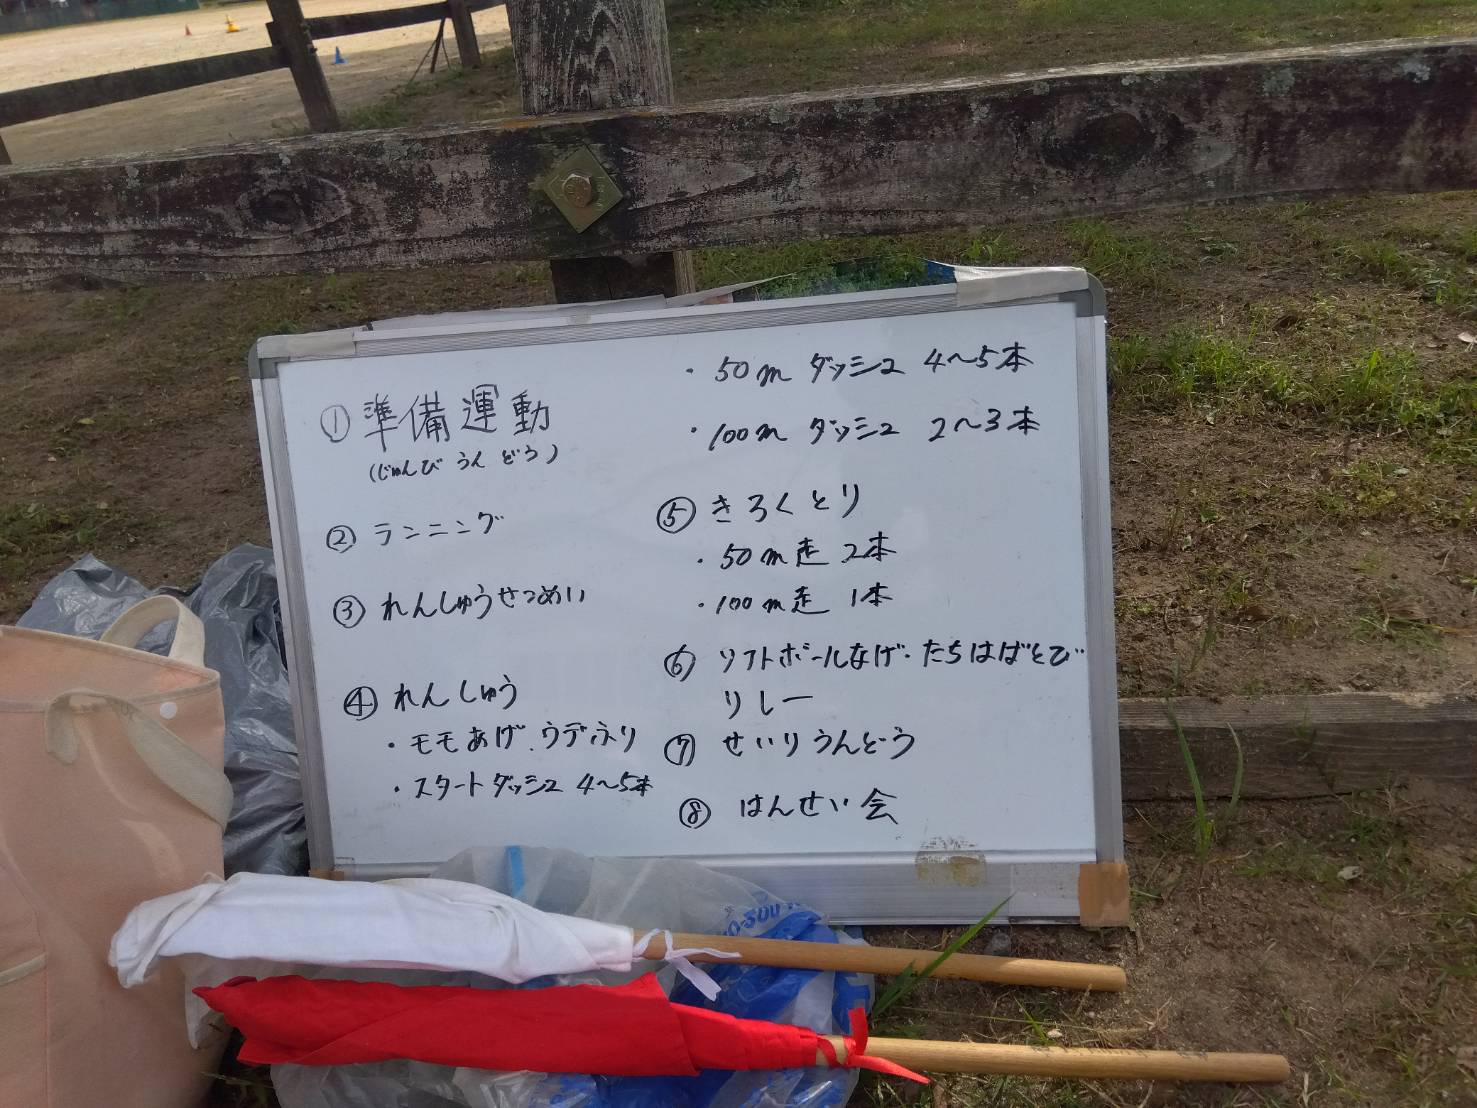 ① 準備運動
(じゅんび うん どう)
② ランニング
③ れんしゅうせつめい
④ れんしゅう
・モモあげ、ウデふり
・スタートダッシュ 4〜5本
・50m ダッシュ 4〜5本
・100m ダッシュ 2〜3本
⑤ きろくとり
・50m走 2本
・100m走 1本
⑥ ソフトボールなげ・たちはばとび
リレー
⑦ せいりうんどう
⑧ はんせい会